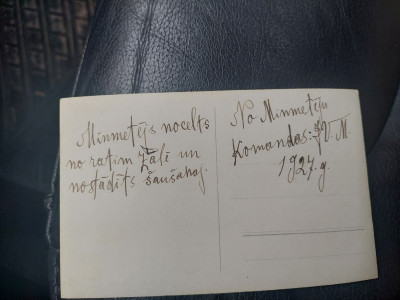 Minmetējs nocelts
no ratim zālī un
nostādīts šaušanaj.
No Minmetēju
Komandas: V. M.
1927. g.